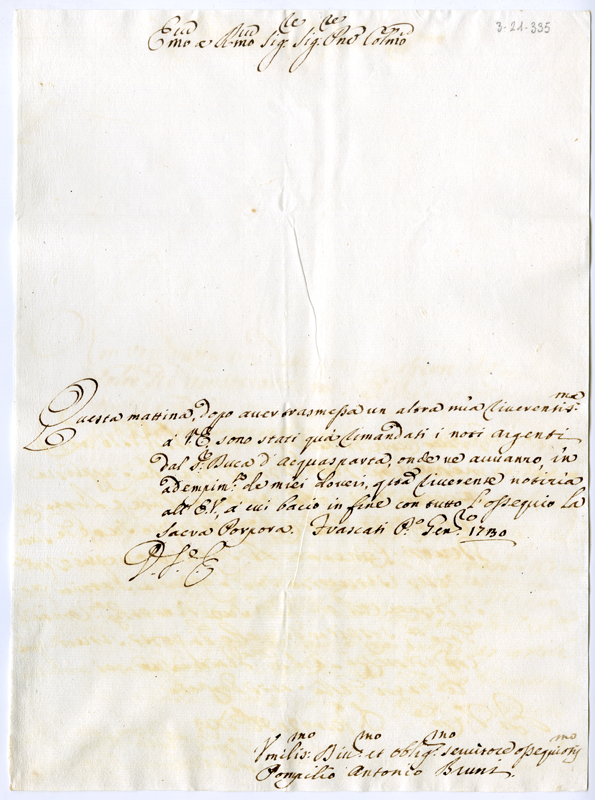 3-21-335
Em̃o e Rm̃o Sig.re Sig.re Pñe Colm̃o
Questa mattina, dopo aver trasmessa un altra mia riverentis:ma
à V.E. sono stati quà rimandati i noti Argenti
dal S.r Duca d'Acquasparta, onde ne avvanzo, in
adempim.to de miei doveri, q̃ta riverente notizia
all'E.V., à cui bacio in fine con tutto l'ossequio la
Sacra Porpora. Frascati P.o Gen.ro 1730
D. V. E.
Vmilis:mo Div:mo et oblig:mo servitore ossequiosis:mo
Pompilio Antonio Bruni.